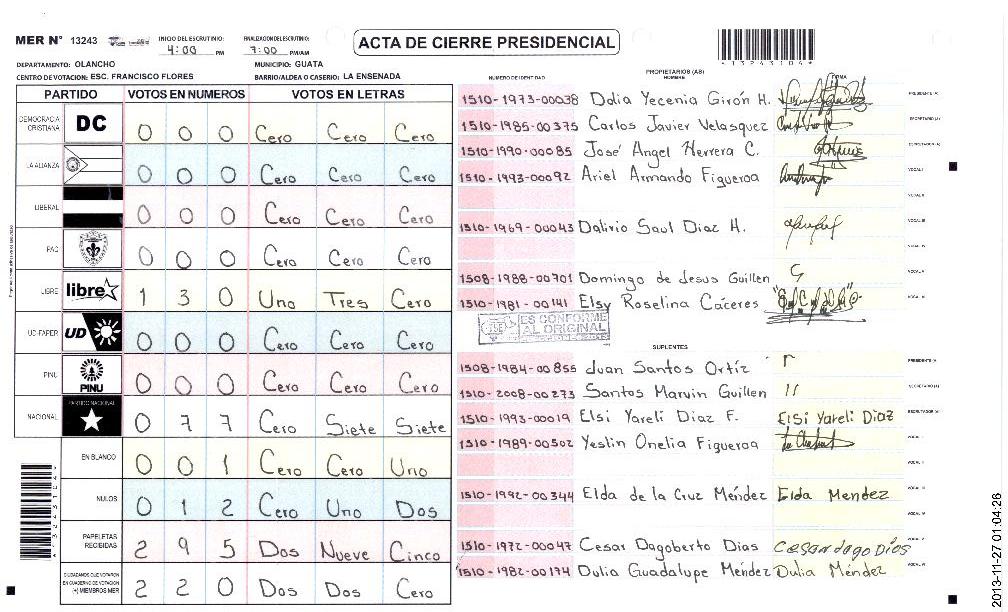 MER N° 13243 INICIO DEL ESCRUTINIO: 4:00 PM FINALIZACION DEL ESCRUTINIO: 7:00 PM/AM
ACTA DE CIERRE PRESIDENCIAL
*13243104*
DEPARTAMENTO: OLANCHO MUNICIPIO: GUATA
CENTRO DE VOTACION: ESC. FRANCISCO FLORES BARRIO/ALDEA O CASERIO: LA ENSENADA
PARTIDO VOTOS EN NUMEROS VOTOS EN LETRAS
DEMOCRACIA CRISTIANA DC 0 0 0 Cero Cero Cero
LA ALIANZA 0 0 0 Cero Cero Cero
LIBERAL 0 0 0 Cero Cero Cero
PAC 0 0 0 Cero Cero Cero
LIBRE libre 1 3 0 Uno Tres Cero
UD-FAPER UD 0 0 0 Cero Cero Cero
PINU PINU 0 0 0 Cero Cero Cero
NACIONAL PARTIDO NACIONAL 0 7 7 Cero Siete Siete
EN BLANCO 0 0 1 Cero Cero Uno
NULOS 0 1 2 Cero Uno Dos
PAPELETAS RECIBIDAS 2 9 5 Dos Nueve Cinco
CIUDADANOS QUE VOTARON EN CUADERNO DE VOTACION (+) MIEMBROS MER 2 2 0 Dos Dos Cero
PROPIETARIOS (AS)
NUMERO DE IDENTIDAD NOMBRE FIRMA
1510-1973-00038 Dolia Yecenia Girón H. PRESIDENTE (A)
1510-1985-00375 Carlos Javier Velasquez SECRETARIO (A)
1510-1990-00085 José Angel Herrera C. ESCRUTADOR (A)
1510-1993-00092 Ariel Armando Figueroa VOCAL I
VOCAL II
1510-1969-00043 Dalivio Saul Diaz H. VOCAL III
VOCAL IV
1508-1988-00701 Domingo de Jesus Guillen G VOCAL V
1510-1981-00141 Elsy Roselina Cáceres VOCAL VI
ES CONFORME AL ORIGINAL
SUPLENTES
1508-1984-00855 Juan Santos Ortíz PRESIDENTE (A)
1510-2008-00273 Santos Marvin Guillen SECRETARIO (A)
1510-1993-00019 Elsi Yareli Diaz F. Elsi Yareli Diaz ESCRUTADOR (A)
1510-1989-00502 Yestin Onelia Figueroa VOCAL I
VOCAL II
1510-1992-00344 Elda de la Cruz Méndez Elda Mendez VOCAL III
VOCAL IV
1510-1972-00047 Cesar Dagoberto Dias Cesar dago Dios VOCAL V
1510-1982-00174 Dulia Guadalupe Méndez Dulia Méndez VOCAL VI
2013-11-27 01:04:26